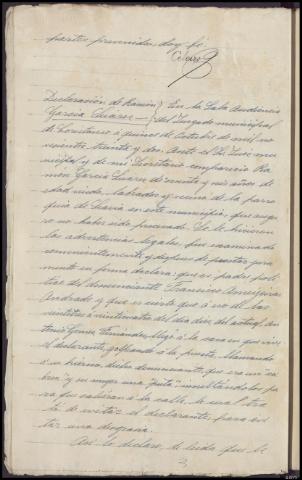 partes prevenidas doy fé.
Declaración de Ramón } En la Sala Audiencia
García Suarez — } del Juzgado municipal
de a quince de Octubre de mil no
vecientos treinta y dos. Ante el Sr Juez mu
nicipal y de mi Secretario comparecio Ra
mon García Suarez de veinte y seis años de
edad, labrador y vecino de la parro
quia de en este municipio, que asegu
ro no haber sido procesado. Se le hicieron
las advertencias legales, fue examinado
convenientemente y despues de puesto jura
mento en forma declara: que es padre poli
tico del denunciante Francisco
Andrade y que es cierto que a eso de las
veintitres a veinticuatro del dia diez del actual, An
tonio Gomez Fernández, llegó á la casa en que vive
el declarante, golpeando á la puerta, llamando
a su hierno, dicho denunciante, que era un "ca
brón" y su mujer una "puta" insultandolos pa
ra que salieran á la calle, lo cual tra
tó de evitar el declarante, para evi
tar una desgracia.
Asi lo declara, y leida que le